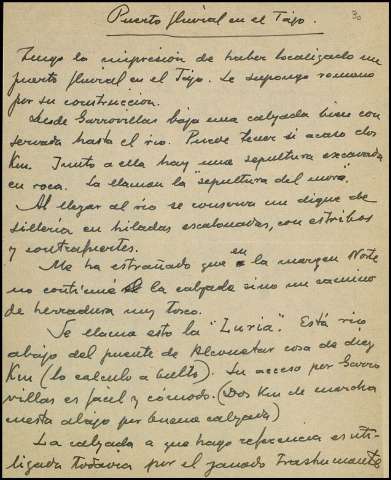 Puerto fluvial en el Tajo.
Tengo la impresión de haber localizado un
puerto fluvial en el Tajo. Le supongo romano
por su construcción.
Desde Garrovillas baja una calzada bien con
servada hasta el rio. Puede tener si acaso dos
Km. Junto a ella hay una sepultura excavada
en roca. La llaman la "sepultura del moro".
Al llegar al rio se conserva un dique de
sillería en hiladas escalonadas, con estribos
y contrafuertes.
Me ha estrañado que en la margen Norte
no continúe la calzada sino un camino
de herradura muy tosco.
Se llama esto la "Luria". Está rio
abajo del puente de Alconetar cosa de diez
Km (lo calculo a bulto). Su acceso por Garro
villas es facil y cómodo. (Dos Km de marcha
cuesta abajo por buena calzada)
La calzada a que hago referencia es uti-
lizada todavia por el ganado trashumante